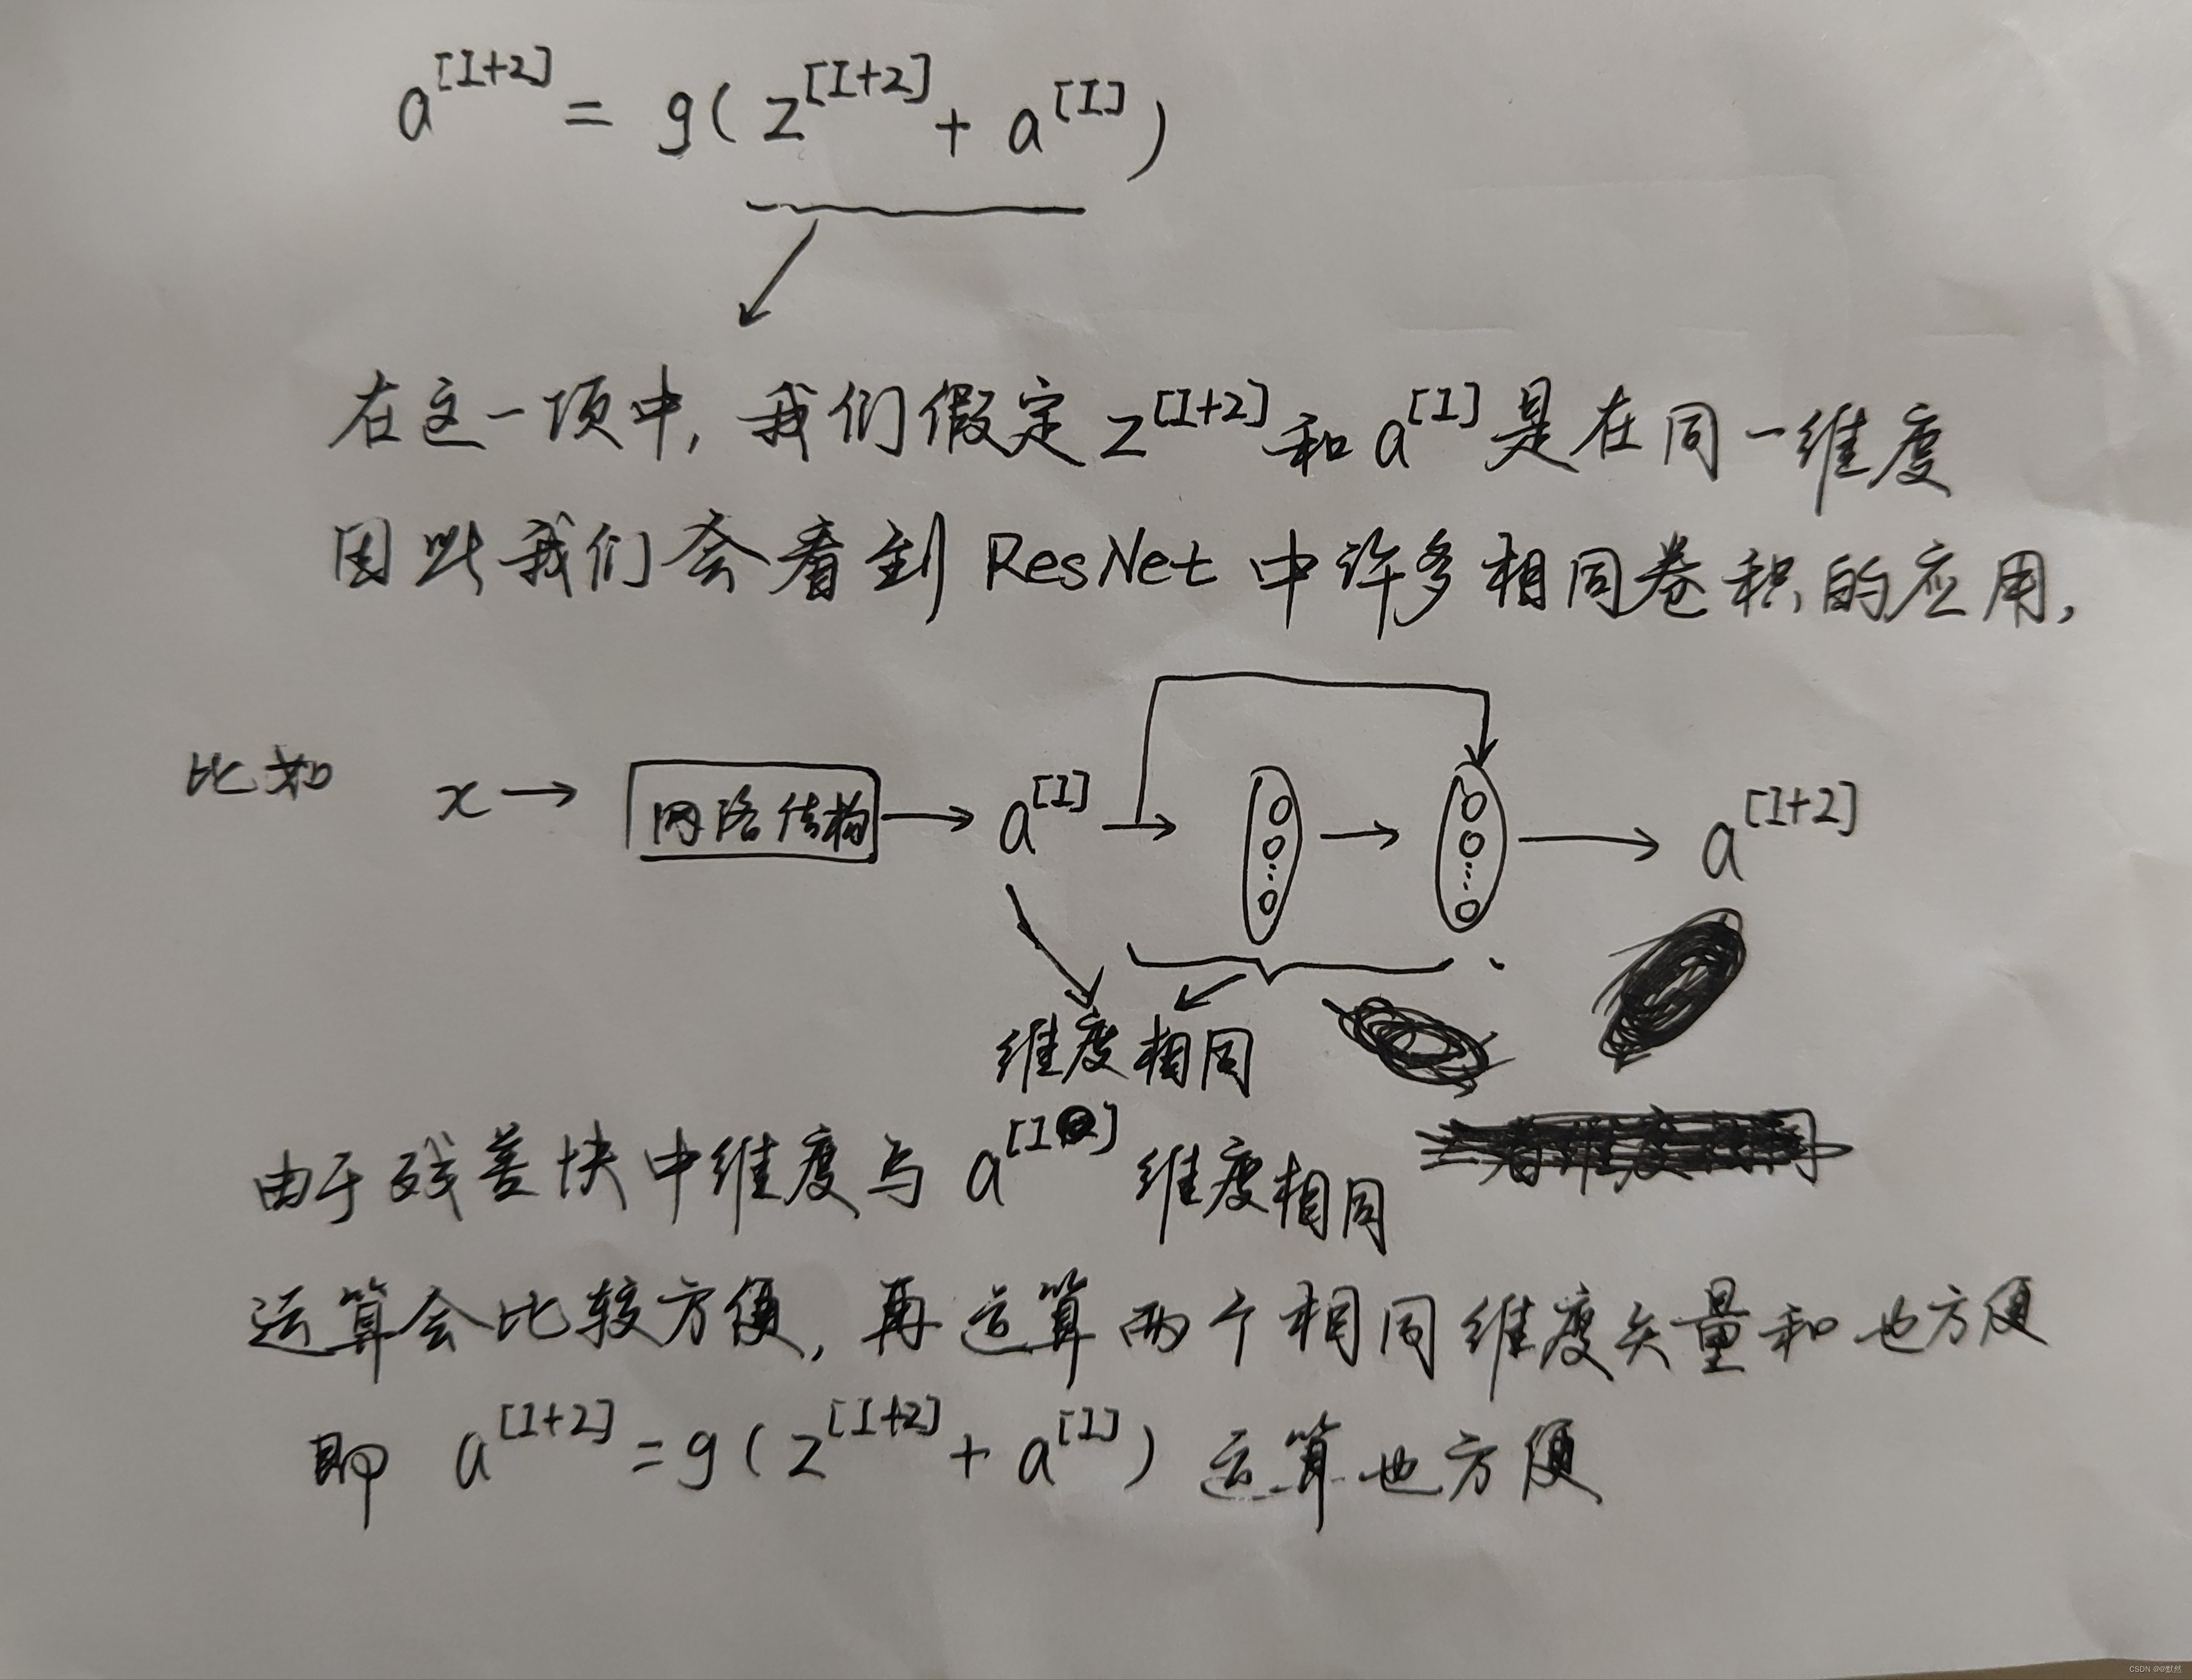 a^[I+2] = g( z^[I+2] + a^[I] )
在这一项中, 我们假定 z^[I+2] 和 a^[I] 是在同一维度
因此我们会看到 ResNet 中许多相同卷积的应用,
比如 x → 网络结构 → a^[I] → → → a^[I+2]
维度相同
由于残差快中维度与 a^[I] 维度相同
运算会比较方便, 再运算两个相同维度矢量和也方便
即 a^[I+2] = g( z^[I+2] + a^[I] ) 运算也方便
CSDN @@默然